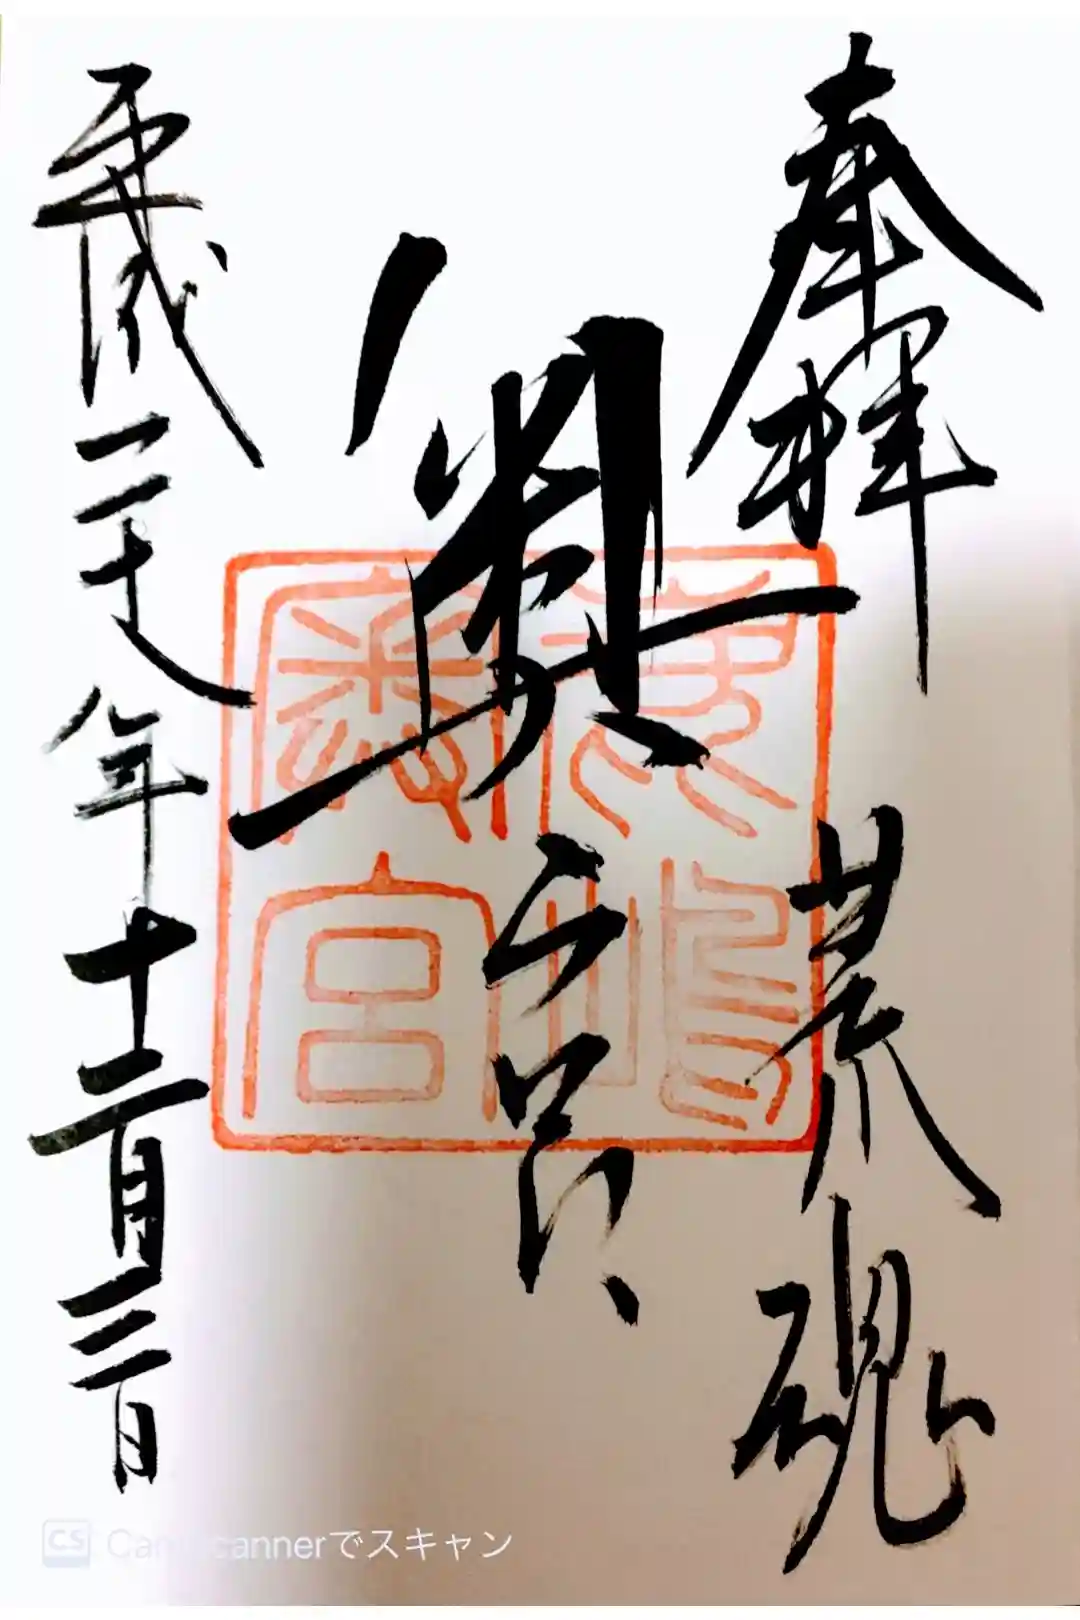 奉拝 荒魂
奥宮
平成二十八年十二月三日
鹿嶋
奥宮
CS CamScannerでスキャン